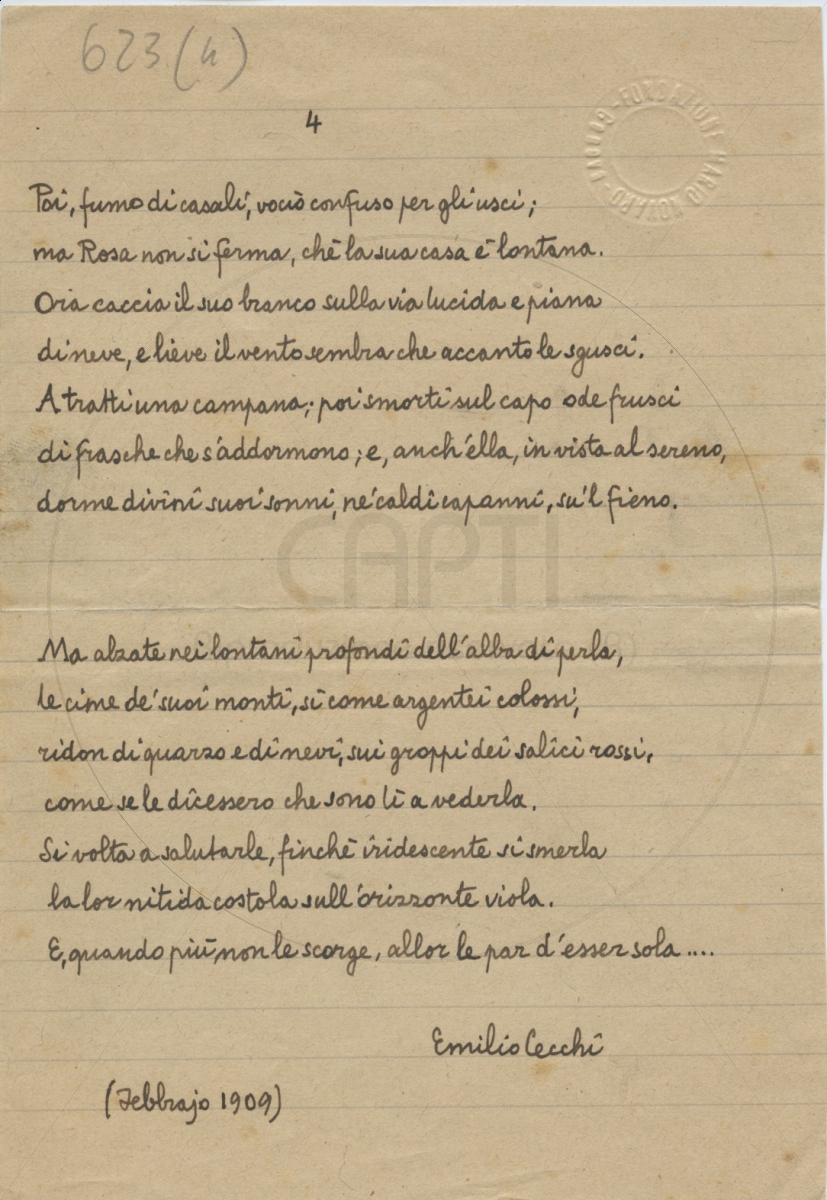 623 (4)
FONDAZIONE MARIO NOVARO
4
Poi, fumo di casali, vocìo confuso per gli usci;
ma Rosa non si ferma, chè la sua casa è lontana.
Ora caccia il suo branco sulla via lucida e piana
di neve, e lieve il vento sembra che accanto le sgusci.
A tratti una campana; poi smorti sul capo ode frusci
di frasche che s'addormono; e, anch'ella, in vista al sereno,
dorme divini suoi sonni, ne' caldi capanni, su 'l fieno.
Ma alzate nei lontani profondi dell'alba di perla,
le cime de' suoi monti, sì come argentei colossi,
ridon di quarzo e di nevi, sui groppi dei salici rossi,
come se le dicessero che sono lì a vederla.
Si volta a salutarle, finchè iridescente si smerla
la lor nitida costola sull'orizzonte viola.
E, quando più non le scorge, allor le par d'esser sola ....
Emilio Cecchi
(Febbrajo 1909)
CAPTI